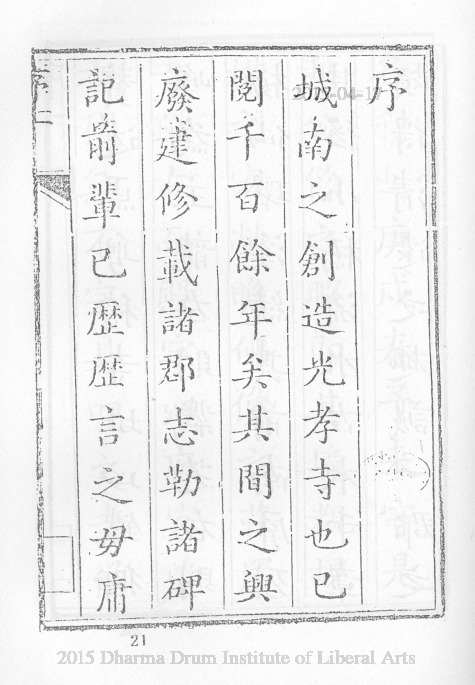 序
城南之創造光孝寺也已
閱千百餘年矣其間之興
廢建修載諸郡志勒諸碑
記前輩已歷歷言之毋庸
序
21
2015 Dharma Drum Institute of Liberal Arts